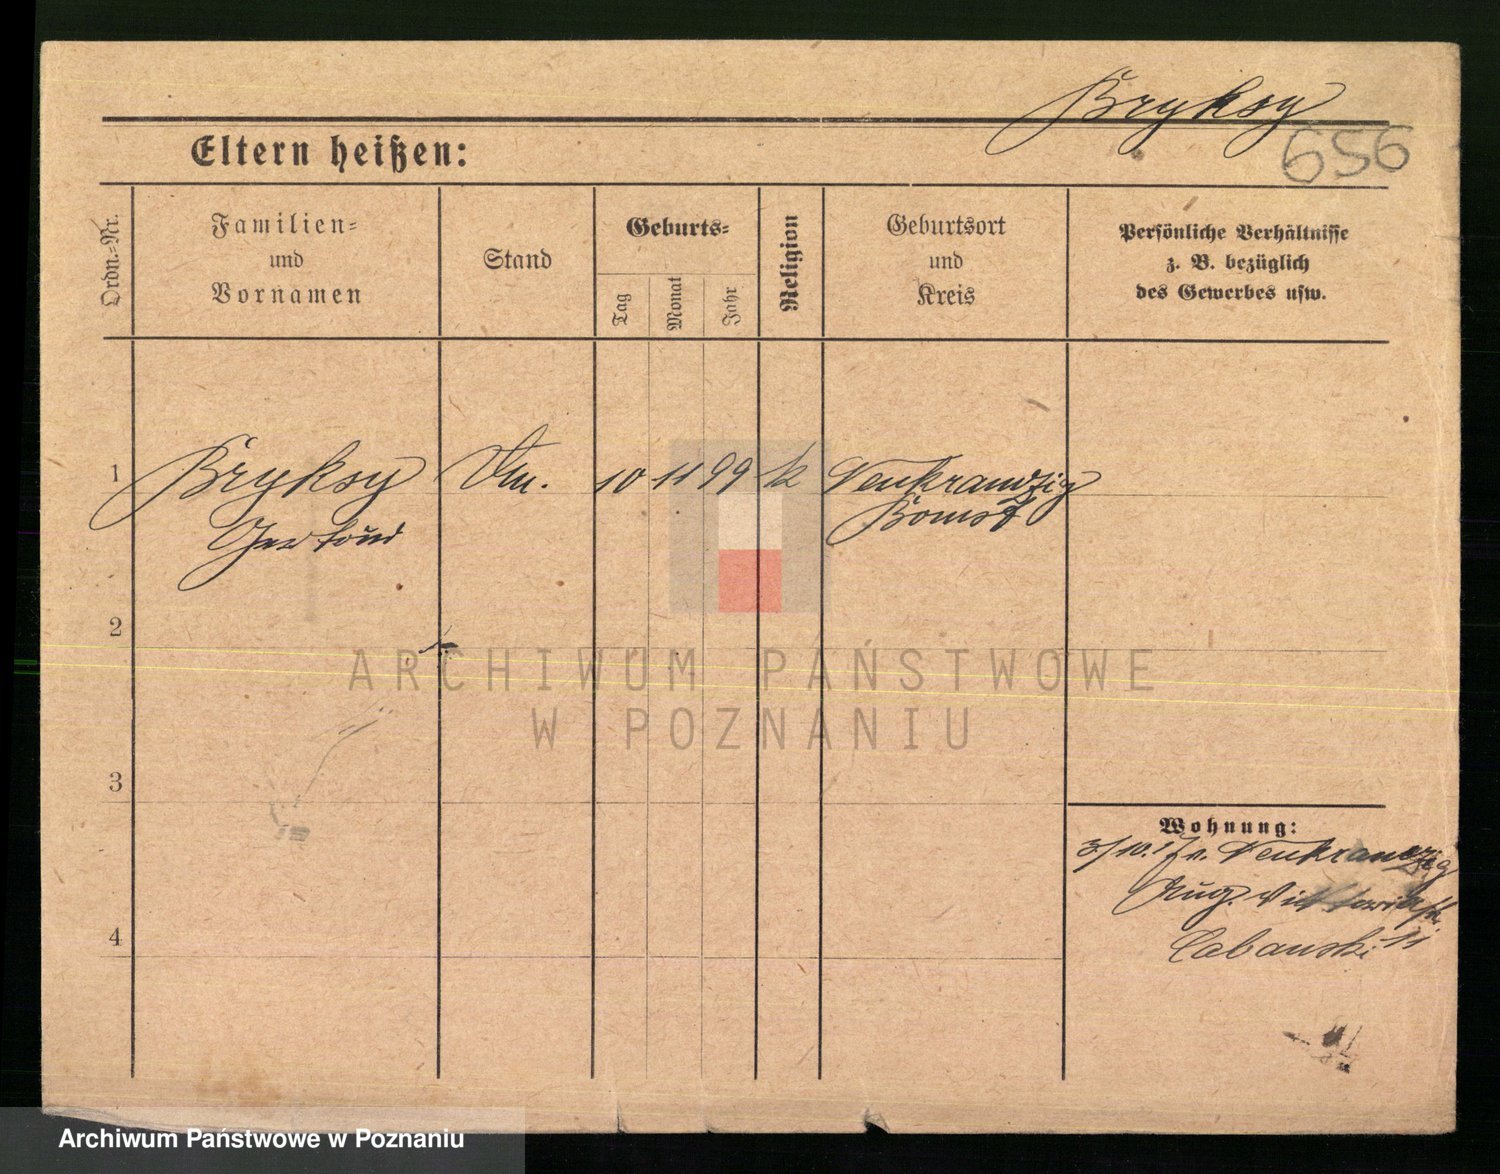 Bryksy
656
Eltern heißen:
Ordn.-Nr.
Familien-
und
Vornamen
Stand
Geburts-
Tag
Monat
Jahr
Religion
Geburtsort
und
Kreis
Persönliche Verhältnisse
z. B. bezüglich
des Gewerbes usw.
1 Bryksy 10 11 99 k Neukrandzig
Bomst
Gertrud
2
3
4
Wohnung:
3/10. Neukrandzig
Aug. Viktoriastr.
11
ARCHIWUM PAŃSTWOWE
W POZNANIU
Archiwum Państwowe w Poznaniu